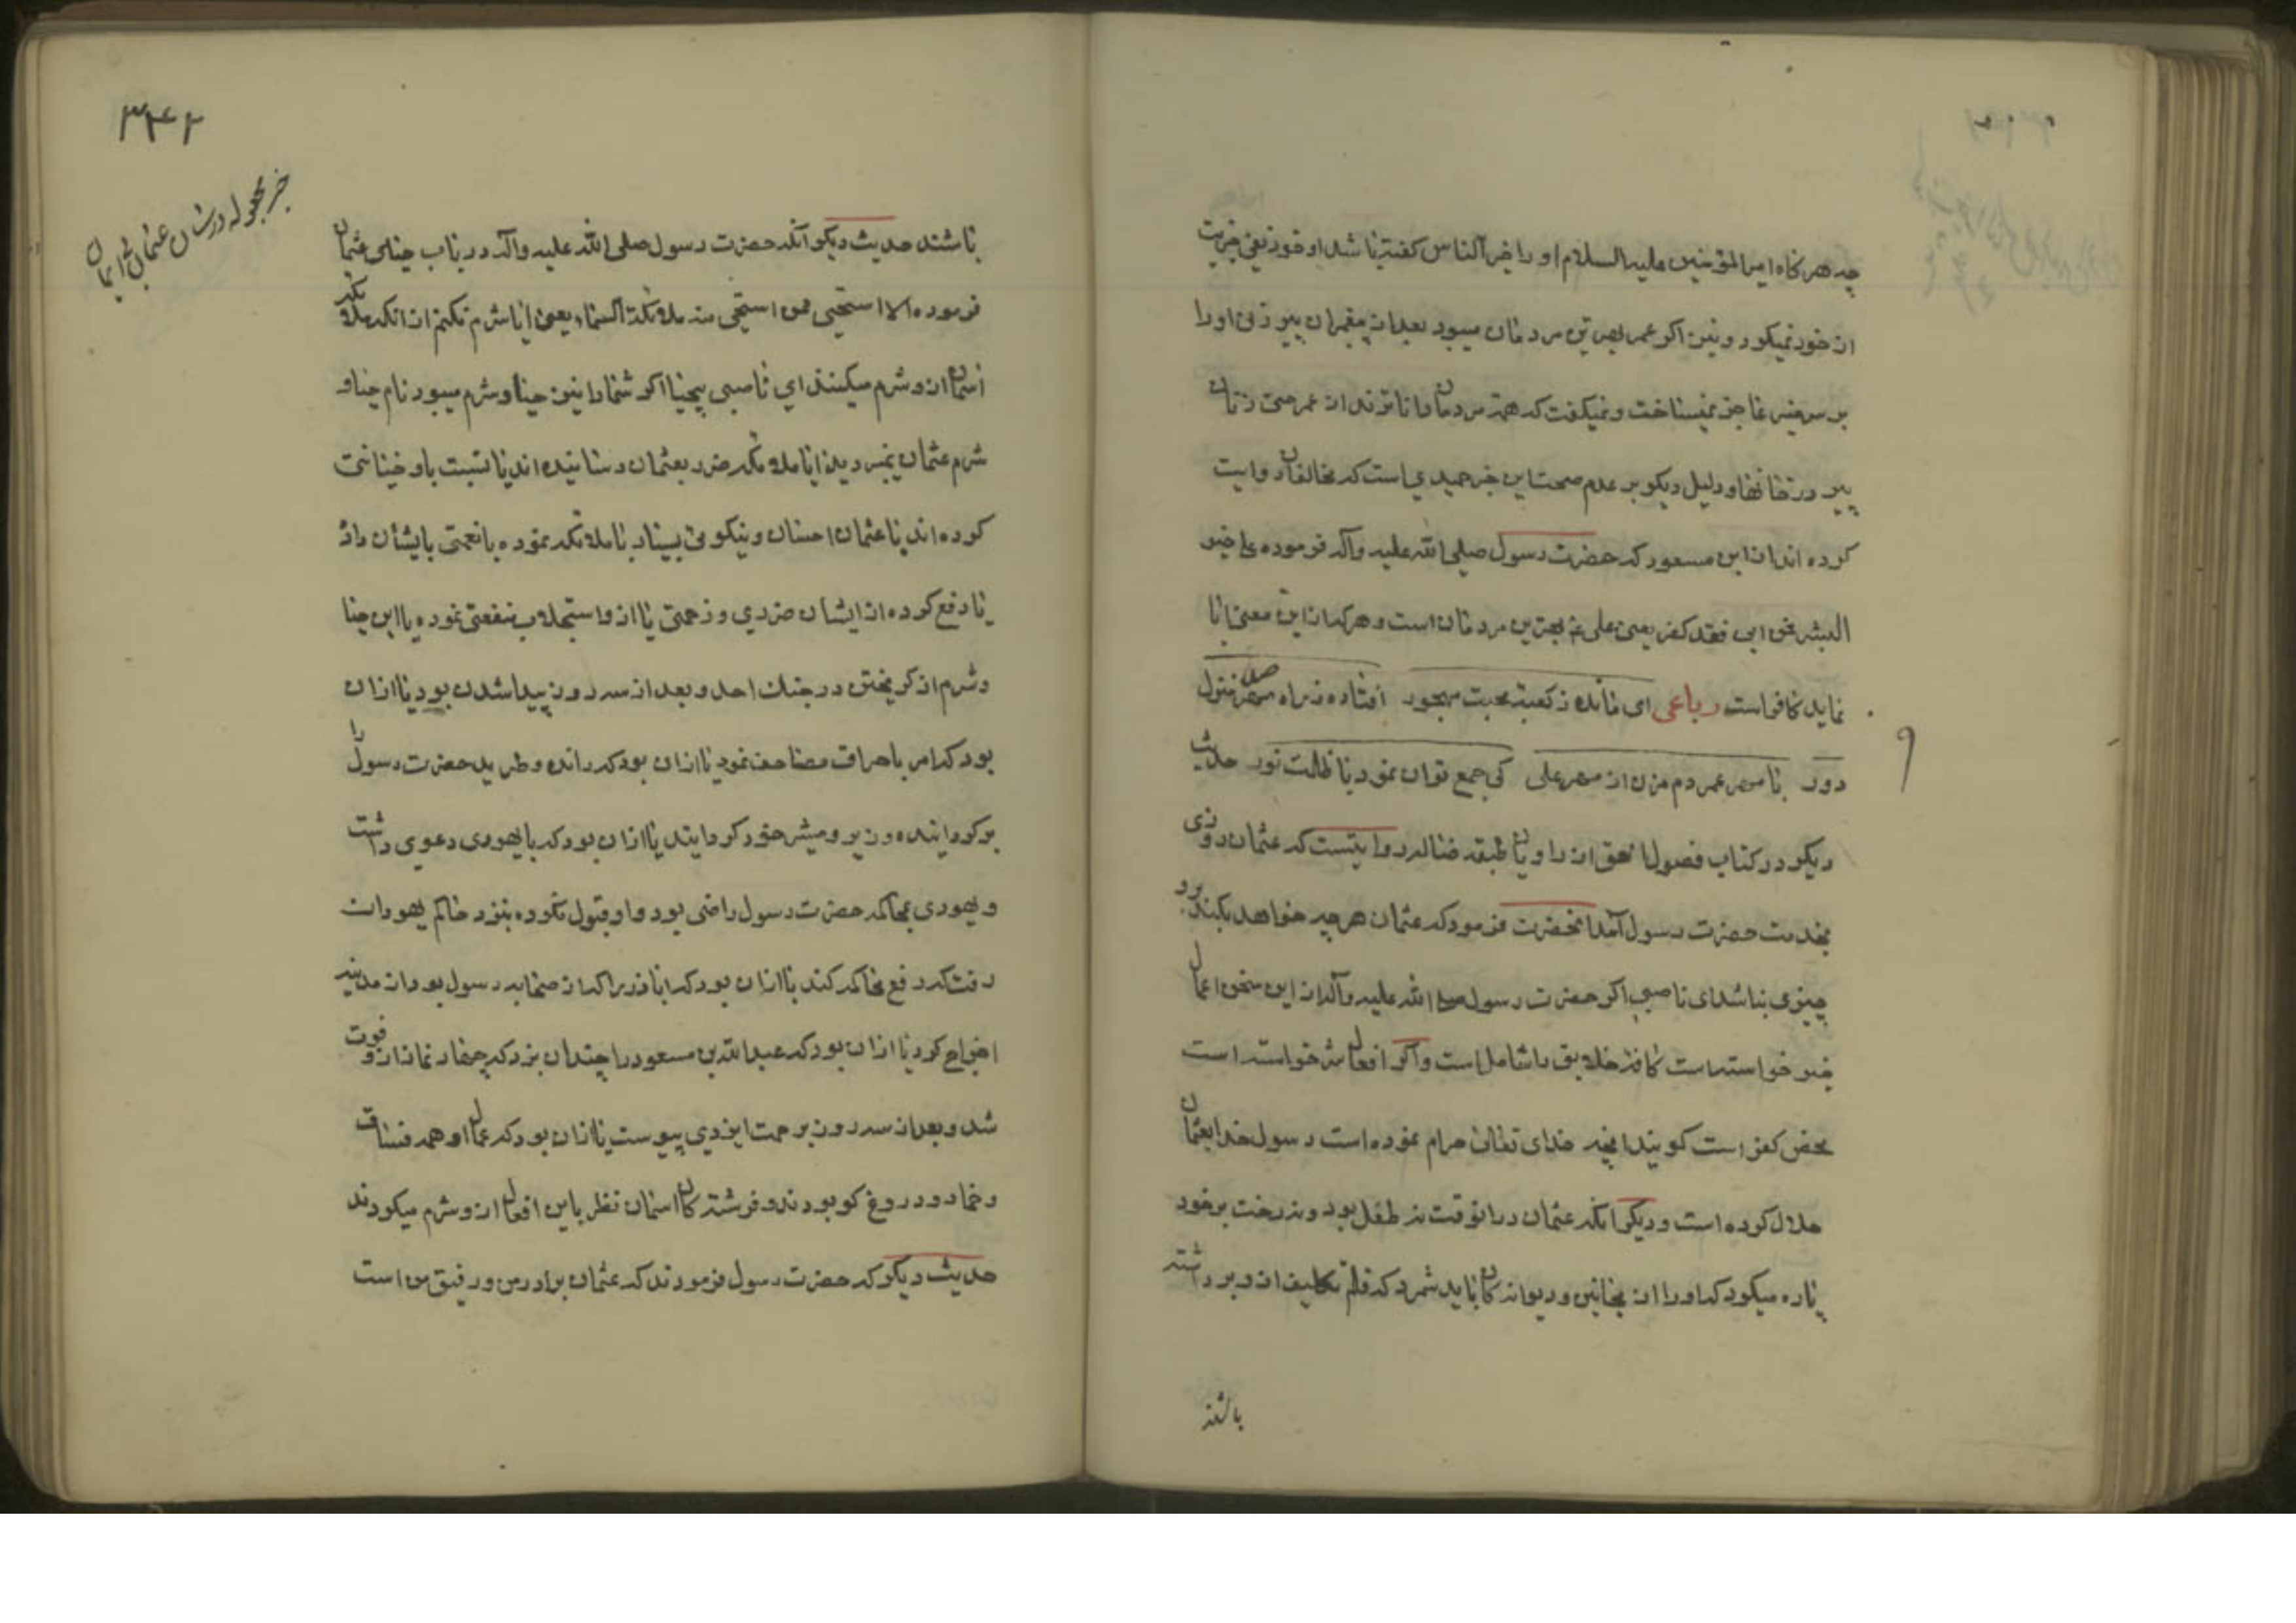 چه هر کاه امیر المؤمنین علیه السلام او را خیر الناس کفته باشد او خود نفی خیریت
از خود نمیکرد و نیز اکر عمر بهترین مردمان میبود بعد از پیغمبران پیر زنی او را
بر سر منبر عاجز نمیساخت و نمیکفت که همه مردمان داناترند از عمر حتی زنان
پیر در خانها و دلیل دیکر بر عدم صحت این خبر حمیدی است که مخالفان روایت
کرده اند از ابن مسعود که حضرت رسول صلی الله علیه وآله فرموده علی خیر
البشر فمن ابی فقد کفر یعنی علی ع بهترین مردمان است و هر که از این معنی ابا
نماید کافر است رباعی ای مانده ز کعبه محبت مهجور افتاده ز راه مهر منزل
دور با مهر عمر دم مزن از مهر علی کی جمع توان نمود با ظلمت نور حدیث
دیکر در کتاب فصول الحق از راویان طبقه ضاله روایتست که عثمان روزی
بخدمت حضرت رسول آمد آنحضرت فرمود که عثمان هر چه خواهد بکند برو
چیزی نباشد ای ناصبی اکر حضرت رسول صلی الله علیه وآله از این سخن اعمال
خیر خواسته است کافه خلایق را شامل است و اکر افعال شر خواسته است
محض کفر است کویند آنچه خدای تعالی حرام نموده است رسول خدا بعثمان
حلال کرده است و دیکر آنکه عثمان در آنوقت نه طفل بود و نه رخت بر خود
پاره میکرد که او را از مجانین و دیوانه کان باید شمرد که قلم تکلیف از و برداشته
باشند
۳۴۲
خبر مجعوله در شان عثمان
باشند حدیث دیکر آنکه حضرت رسول صلی الله علیه وآله در باب حیای عثمان
فرموده الا استحیی ممن استحی منه ملائکة السماء یعنی ایا شرم نکنم از آنکه ملائکه
آسمان از و شرم میکنند ای ناصبی بیحیا اکر شما را نیز حیا و شرم میبود نام حیا و
شرم عثمان نمیبردید ایا ملائکه ضرر بعثمان رسانیده اند یا نسبت باو خیانتی
کرده اند یا عثمان احسان و نیکوئی بسیار با ملائکه نموده یا نعمتی بایشان داد
یا دفع کرده از ایشان ضرری و زحمتی یا از و استجلاب منفعتی نموده یا این حیا
و شرم از کریختن در جنک احد و بعد از سه روز پیدا شدن بود یا از آن
بود که امر باحراق مصاحف نمود یا از آن بود که رانده و طرید حضرت رسول را
برکردانیده وزیر و مشیر خود کردانید یا از آن بود که با یهودی دعوی داشت
و یهودی بمحاکمه حضرت رسول راضی بود و او قبول نکرده بنزد حاکم یهودان
رفت که رفع محاکمه کند یا از آن بود که ابا ذر را که از صحابه رسول بود از مدینه
اخراج کرد یا از آن بود که عبد الله بن مسعود را چندان بزد که چهار نماز از و فوت
شد و بعد از سه روز برحمت ایزدی پیوست یا از آن بود که عمال او همه فساق
و خمار و دروغ کو بودند و فرشته کان آسمان نظر باین افعال از و شرم میکردند
حدیث دیکر که حضرت رسول فرمودند که عثمان برادر من و رفیق من است